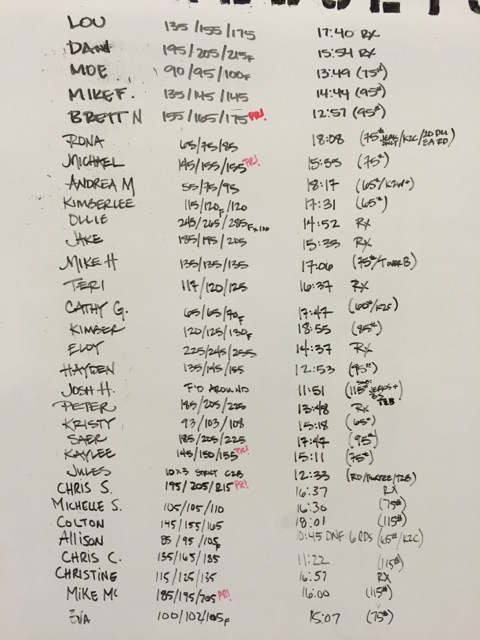 LOU 135/155/175 17:40 RX
DAN 195/205/215F 15:54 RX
MOE 90/95/100F 13:49 (75#)
MIKE F. 135/145/145 14:44 (95#)
BRETT N 155/165/175 PR! 12:57 (95#)
RONA 65/75/85 18:08 (75# /K2C/20 DU EA RD)
MICHAEL 145/155/155 PR! 15:55 (75#)
ANDREA M 55/75/95 18:17 (65#/K2W+)
KIMBERLEE 115/120F/120 17:31 (65#)
OLLIE 245/265/285F 14:52 RX
JAKE 185/195/205 15:33 RX
MIKE H 135/135/135 17:06 (75#/T OVER B)
TERI 117/120/125 16:37 RX
CATHY G. 65/65/70F 17:47 (60#/K2C)
KIMBER 120/125/130F 18:55 (85#)
ELOY 225/245/255 14:37 RX
HAYDEN 135/145/155 12:53 (95#)
JOSH H. F'D AROUND 11:51 (115# JERKS+ T2B
PETER 185/205/225 13:48 RX
KRISTY 93/103/108 15:18 (65#)
SAER 185/205/225 17:44 (95#)
KAYLEE 145/150/155 PR! 15:11 (75#)
JULES 10x3 STRICT C2B 12:33 (RD/ /T2B)
CHRIS S. 195/205/215 PR! 16:37 RX
MICHELLE S. 105/105/110 16:30 (75#)
COLTON 145/155/165 18:01 (115#)
Allison 85/95/105F 10:45 DNF 6 RDS (65#/K2C)
CHRIS C. 135/165/185 11:22 (115#)
CHRISTINE 115/125/135 16:57 RX
MIKE MC 185/195/205 PR! 16:00 (115#)
EVA 100/102/105F 15:07 (75#)